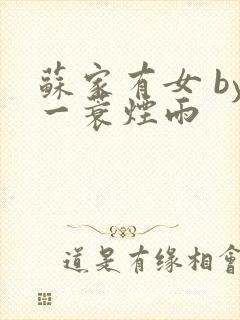 蘇家有女 by
一蓑煙雨
道是有缘相會